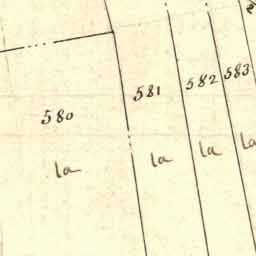 580 581 582 583
la la la la